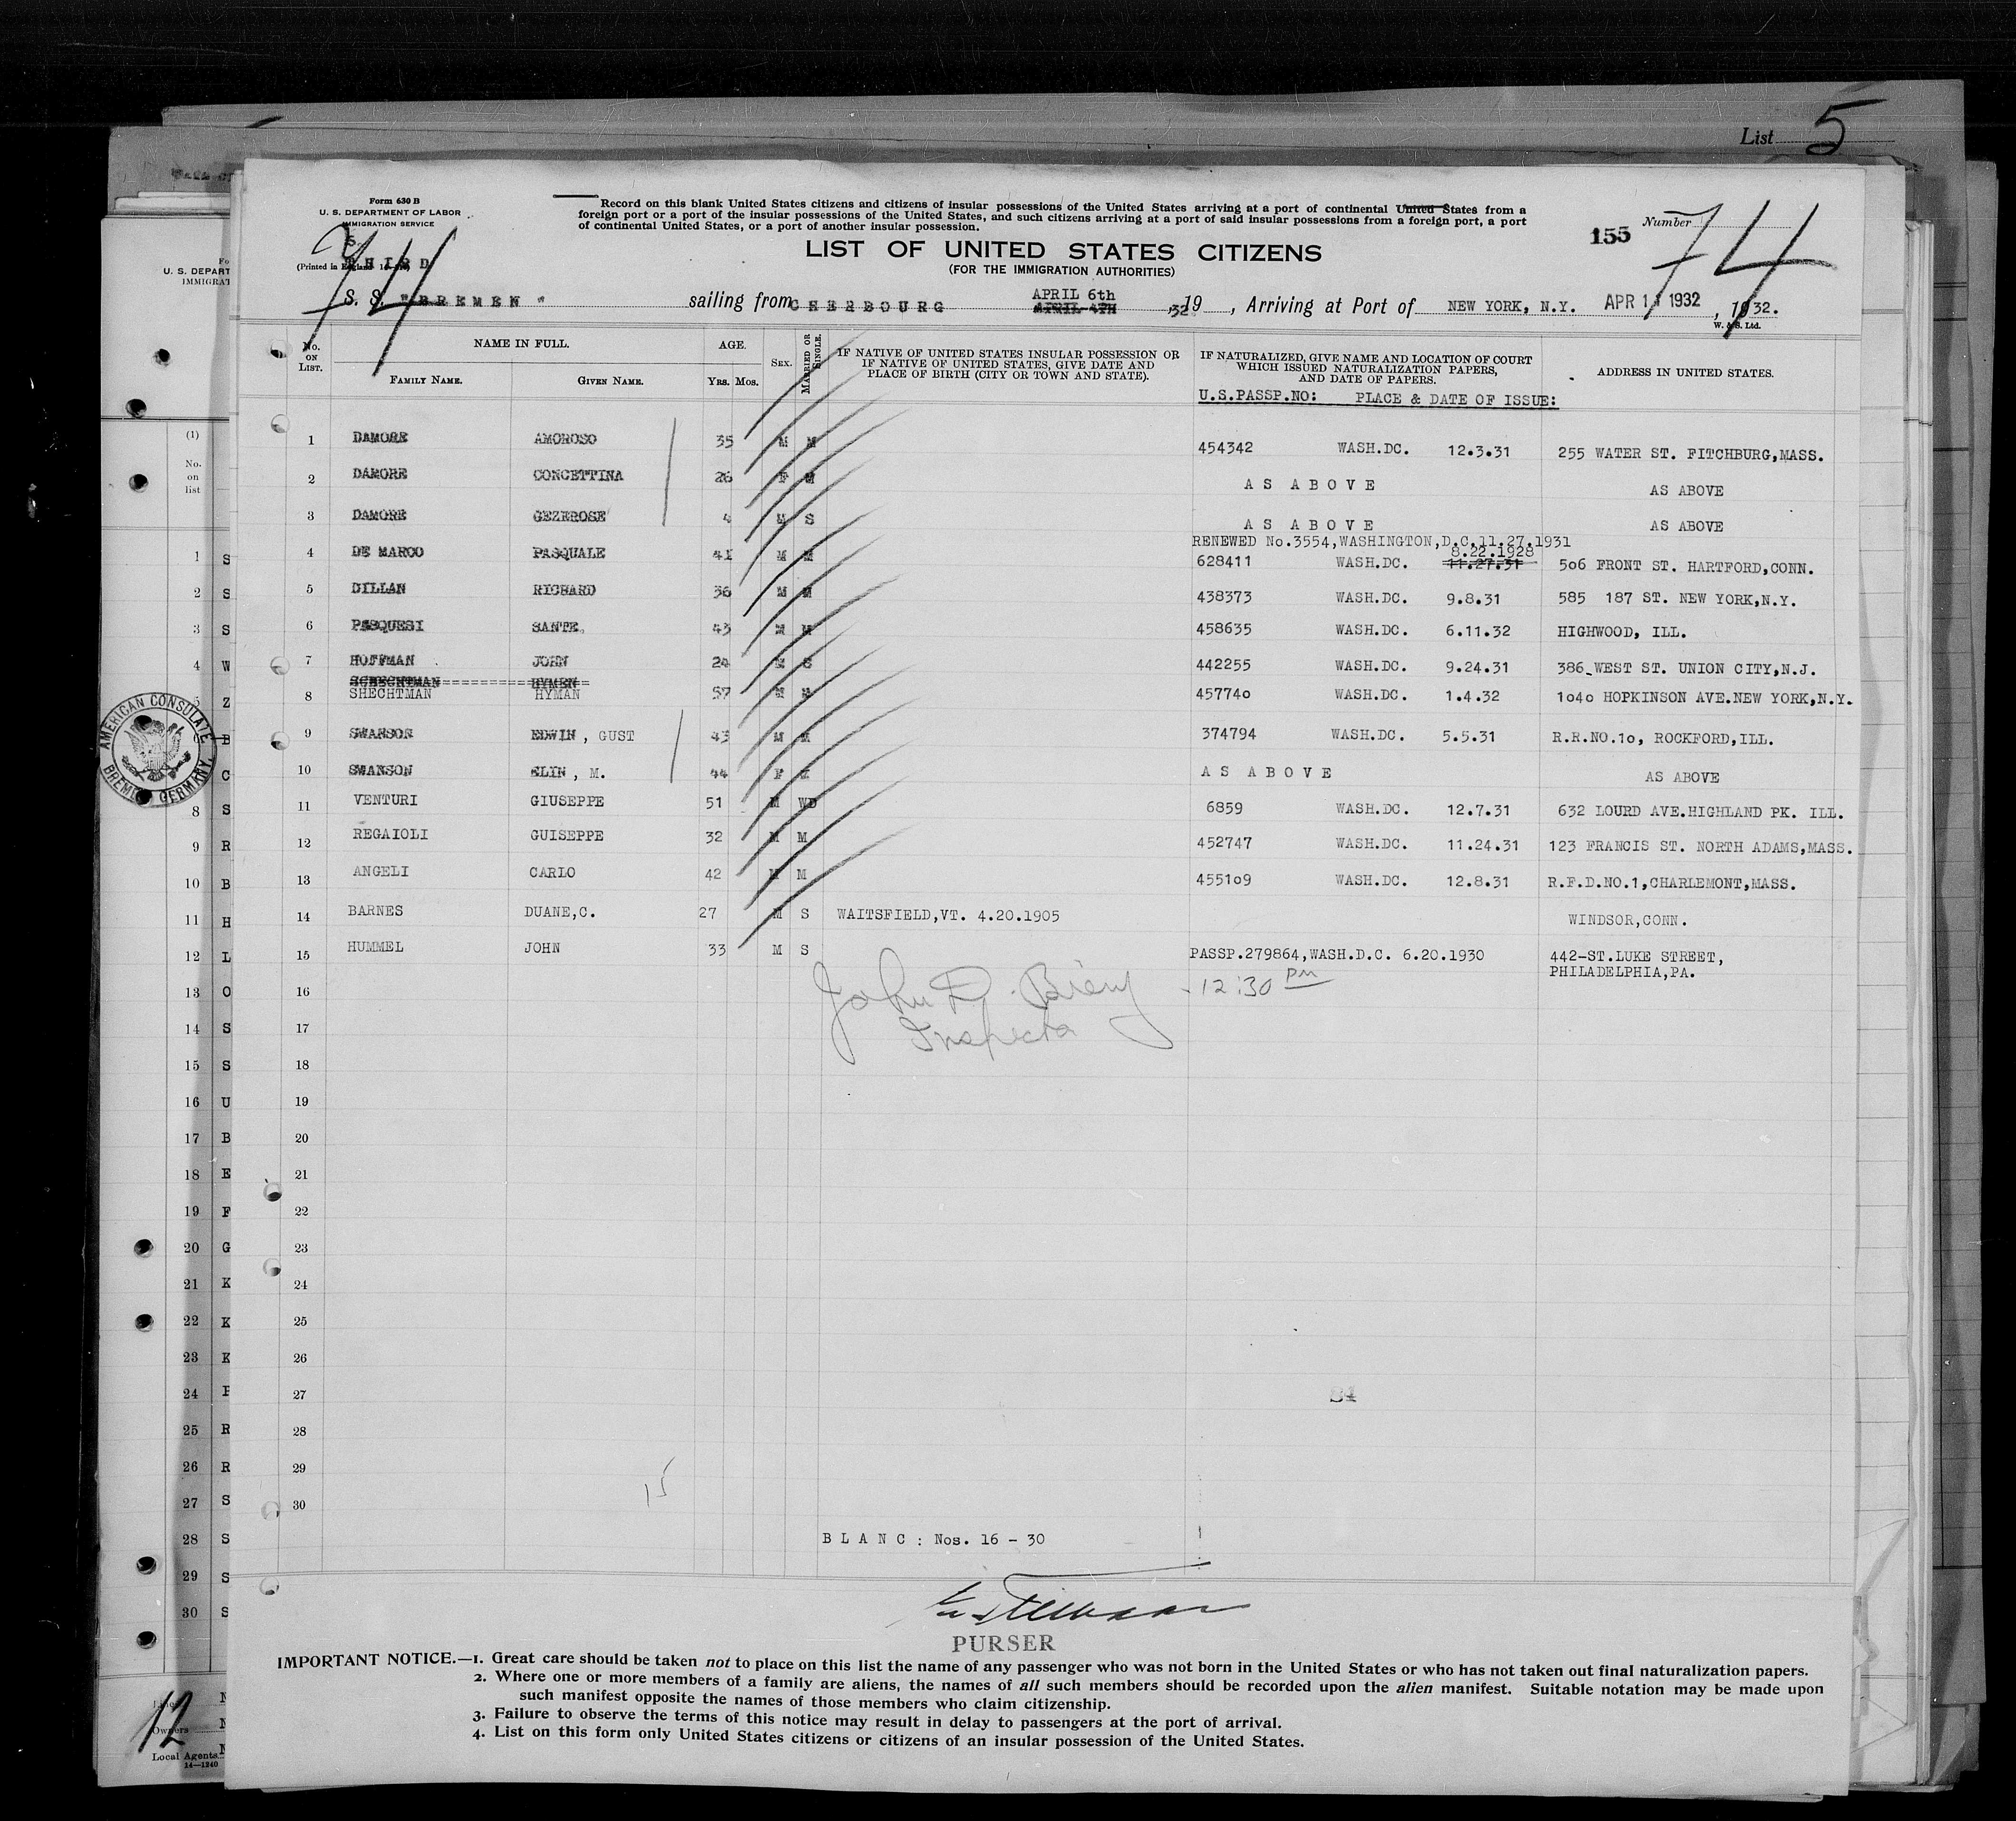 List 5
Form 630 B
U. S. DEPARTMENT OF LABOR
IMMIGRATION SERVICE
Record on this blank United States citizens and citizens of insular possessions of the United States arriving at a port of continental United States from a
foreign port or a port of the insular possessions of the United States, and such citizens arriving at a port of said insular possessions from a foreign port, a port
of continental United States, or a port of another insular possession.
155 Number 74
74
LIST OF UNITED STATES CITIZENS
(FOR THE IMMIGRATION AUTHORITIES)
THIRD
(Printed in England
S. S. "BREMEN" sailing from CHERBOURG APRIL 6th APRIL 4TH ,32 19 , Arriving at Port of NEW YORK, N.Y. APR 11 1932 , 1932.
W. & S. Ltd.
No. ON LIST. NAME IN FULL. AGE. SEX. MARRIED OR SINGLE. IF NATIVE OF UNITED STATES INSULAR POSSESSION OR IF NATIVE OF UNITED STATES, GIVE DATE AND PLACE OF BIRTH (CITY OR TOWN AND STATE). IF NATURALIZED, GIVE NAME AND LOCATION OF COURT WHICH ISSUED NATURALIZATION PAPERS, AND DATE OF PAPERS. ADDRESS IN UNITED STATES.
FAMILY NAME. GIVEN NAME. YRS. MOS.
U.S.PASSP.NO: PLACE & DATE OF ISSUE:
1 DAMORE AMOROSO 35 M M 454342 WASH.DC. 12.3.31 255 WATER ST. FITCHBURG,MASS.
2 DAMORE CONCETTINA 26 F M AS ABOVE AS ABOVE
3 DAMORE GEZEROSE 4 M S AS ABOVE AS ABOVE
RENEWED No.3554,WASHINGTON,D.C.11.27.1931
8.22.1928
4 DE MARCO PASQUALE 41 M M 628411 WASH.DC. 11.27.31 506 FRONT ST. HARTFORD,CONN.
5 DILLAN RICHARD 36 M M 438373 WASH.DC. 9.8.31 585 187 ST. NEW YORK,N.Y.
6 PASQUESI SANTE 43 M M 458635 WASH.DC. 6.11.32 HIGHWOOD, ILL.
7 HOFFMAN JOHN 24 M S 442255 WASH.DC. 9.24.31 386 WEST ST. UNION CITY,N.J.
SCHECHTMAN HYMEN
8 SHECHTMAN HYMAN 57 M M 457740 WASH.DC. 1.4.32 1040 HOPKINSON AVE.NEW YORK,N.Y.
9 SWANSON EDWIN, GUST 43 M M 374794 WASH.DC. 5.5.31 R.R.NO.10, ROCKFORD,ILL.
10 SWANSON ELIN, M. 44 F M AS ABOVE AS ABOVE
11 VENTURI GIUSEPPE 51 M WD 6859 WASH.DC. 12.7.31 632 LOURD AVE.HIGHLAND PK. ILL.
12 REGAIOLI GUISEPPE 32 M M 452747 WASH.DC. 11.24.31 123 FRANCIS ST. NORTH ADAMS,MASS.
13 ANGELI CARLO 42 M M 455109 WASH.DC. 12.8.31 R.F.D.NO.1,CHARLEMONT,MASS.
14 BARNES DUANE,C. 27 M S WAITSFIELD,VT. 4.20.1905 WINDSOR,CONN.
15 HUMMEL JOHN 33 M S PASSP.279864,WASH.D.C. 6.20.1930 442-ST.LUKE STREET,
PHILADELPHIA,PA.
16 John D. 12:30 pm
Inspector
17
18
19
20
21
22
23
24
25
26
27 84
28
29
30
15
BLANC: Nos. 16 - 30
PURSER
IMPORTANT NOTICE.—1. Great care should be taken not to place on this list the name of any passenger who was not born in the United States or who has not taken out final naturalization papers.
2. Where one or more members of a family are aliens, the names of all such members should be recorded upon the alien manifest. Suitable notation may be made upon
such manifest opposite the names of those members who claim citizenship.
3. Failure to observe the terms of this notice may result in delay to passengers at the port of arrival.
4. List on this form only United States citizens or citizens of an insular possession of the United States.
U. S. DEPART
IMMIGRAT
(1)
No.
on
list
1 S
2 S
3 S
4 W
5 Z
6 B
C
8 S
9 R
10 B
11 H
12 L
13 O
14 S
15 S
16 U
17 B
18 E
19 F
20 G
21 K
22 K
23 K
24 P
25 R
26 R
27 S
28 S
29 S
30 S
AMERICAN CONSULATE
BREMEN GERMANY
12
Owners
Local Agents
14—1240